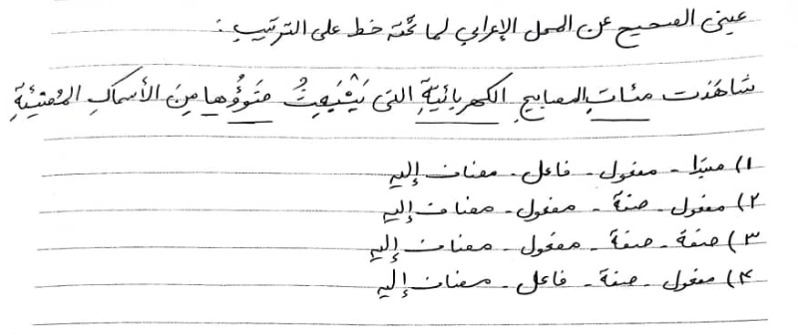 عینی الصحیح عن المحل الإعرابي لما تحته خط علی الترتیب :
شَاهَدَت مئاتِ المصابیحِ الکهربائیَّةِ التی یَنْبَعِثُ ضَوْؤُها مِنَ الأسماکِ المُضیئَةِ
۱) مبتدا - مفعول - فاعل - مضاف إلیه
۲) مفعول - صفة - مفعول - مضاف إلیه
۳) صفة - صفة - مفعول - مضاف إلیه
۴) مفعول - صفة - فاعل - مضاف إلیه